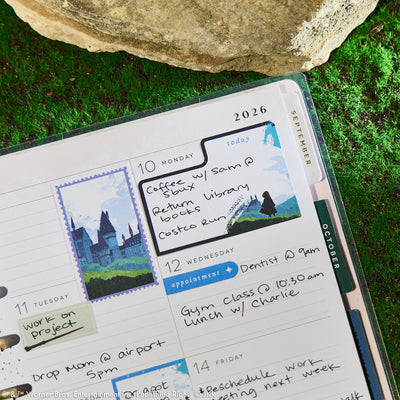 2026
SEPTEMBER
OCTOBER
10 MONDAY
today
Coffee w/ sam @
sbux
Return Library
books
Costco run
11 TUESDAY
work on
project
Drop Mom @ airport
5pm
12 WEDNESDAY
appointment
Dentist @ 9am
Gym Class @ 10:30am
Lunch w/ Charlie
14 FRIDAY
*Reschedule work
meeting next week
© & ™ Warner Bros. Entertainment Inc. Publishing Rights